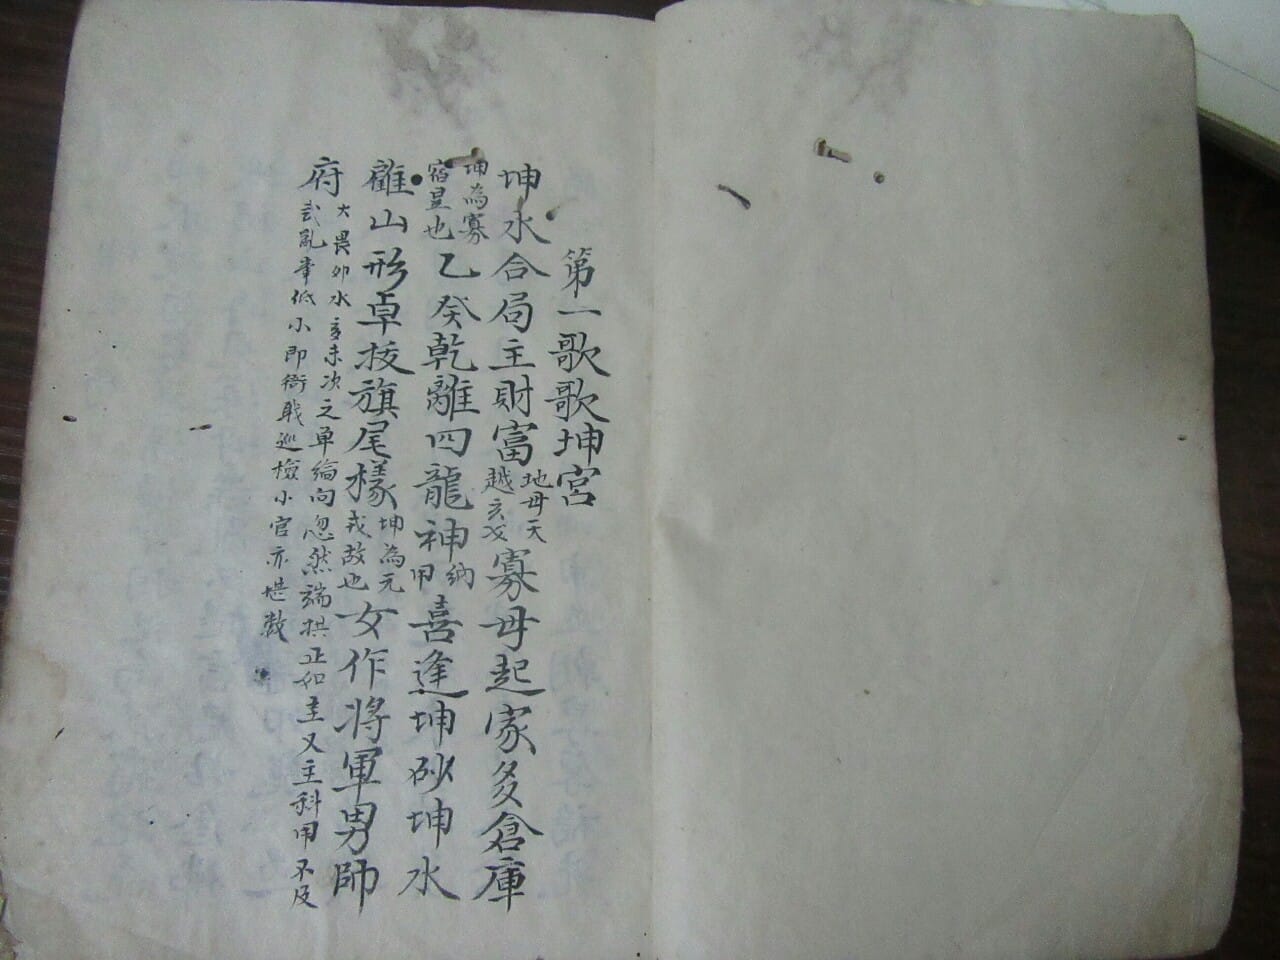 第一歌歌坤宮
坤水合局主財富地母天越亥爻寡母起家多倉庫
坤為寡宿星也乙癸乾離四龍神納甲喜逢坤砂坤水
離山形卓拔旗尾樣坤為元戎故也女作將軍男帥
府大畏卯水亥未次之單綸向忽然端拱正如圭又主科甲不及
武亂輩低小即衙戢巡檢小官亦堪數